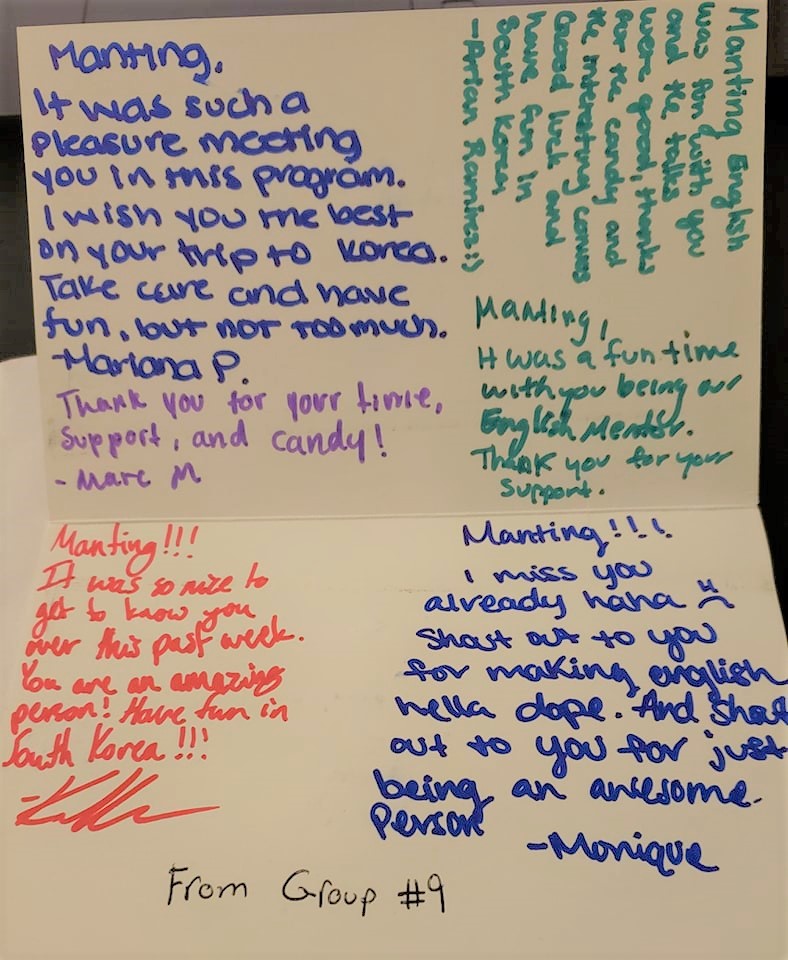 Manting,
It was such a
pleasure meeting
you in this program.
I wish you the best
on your trip to Korea.
Take care and have
fun, but not too much.
-Mariana P.
Thank you for your time,
support, and candy!
- Marc M
Manting English
was fun with you
and the talks
were good, thanks
for the candy and
the interesting convos
Good luck and
have fun in
South Korea,
Ramirez :)
Manting,
It was a fun time
with you being our
English Mentor.
Thank you for your
support.
Manting!!!
It was so nice to
get to know you
over this past week.
You are an amazing
person! Have fun in
South Korea!!!
Manting!!!!
I miss you
already haha
Shout out to you
for making english
hella dope. And Shout
out to you for just
being an awesome
Person
-Monique
From Group #9